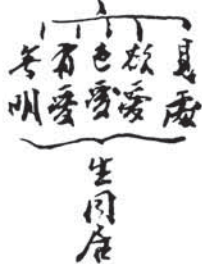 見處
欲愛
色愛
有愛
無明
生同居